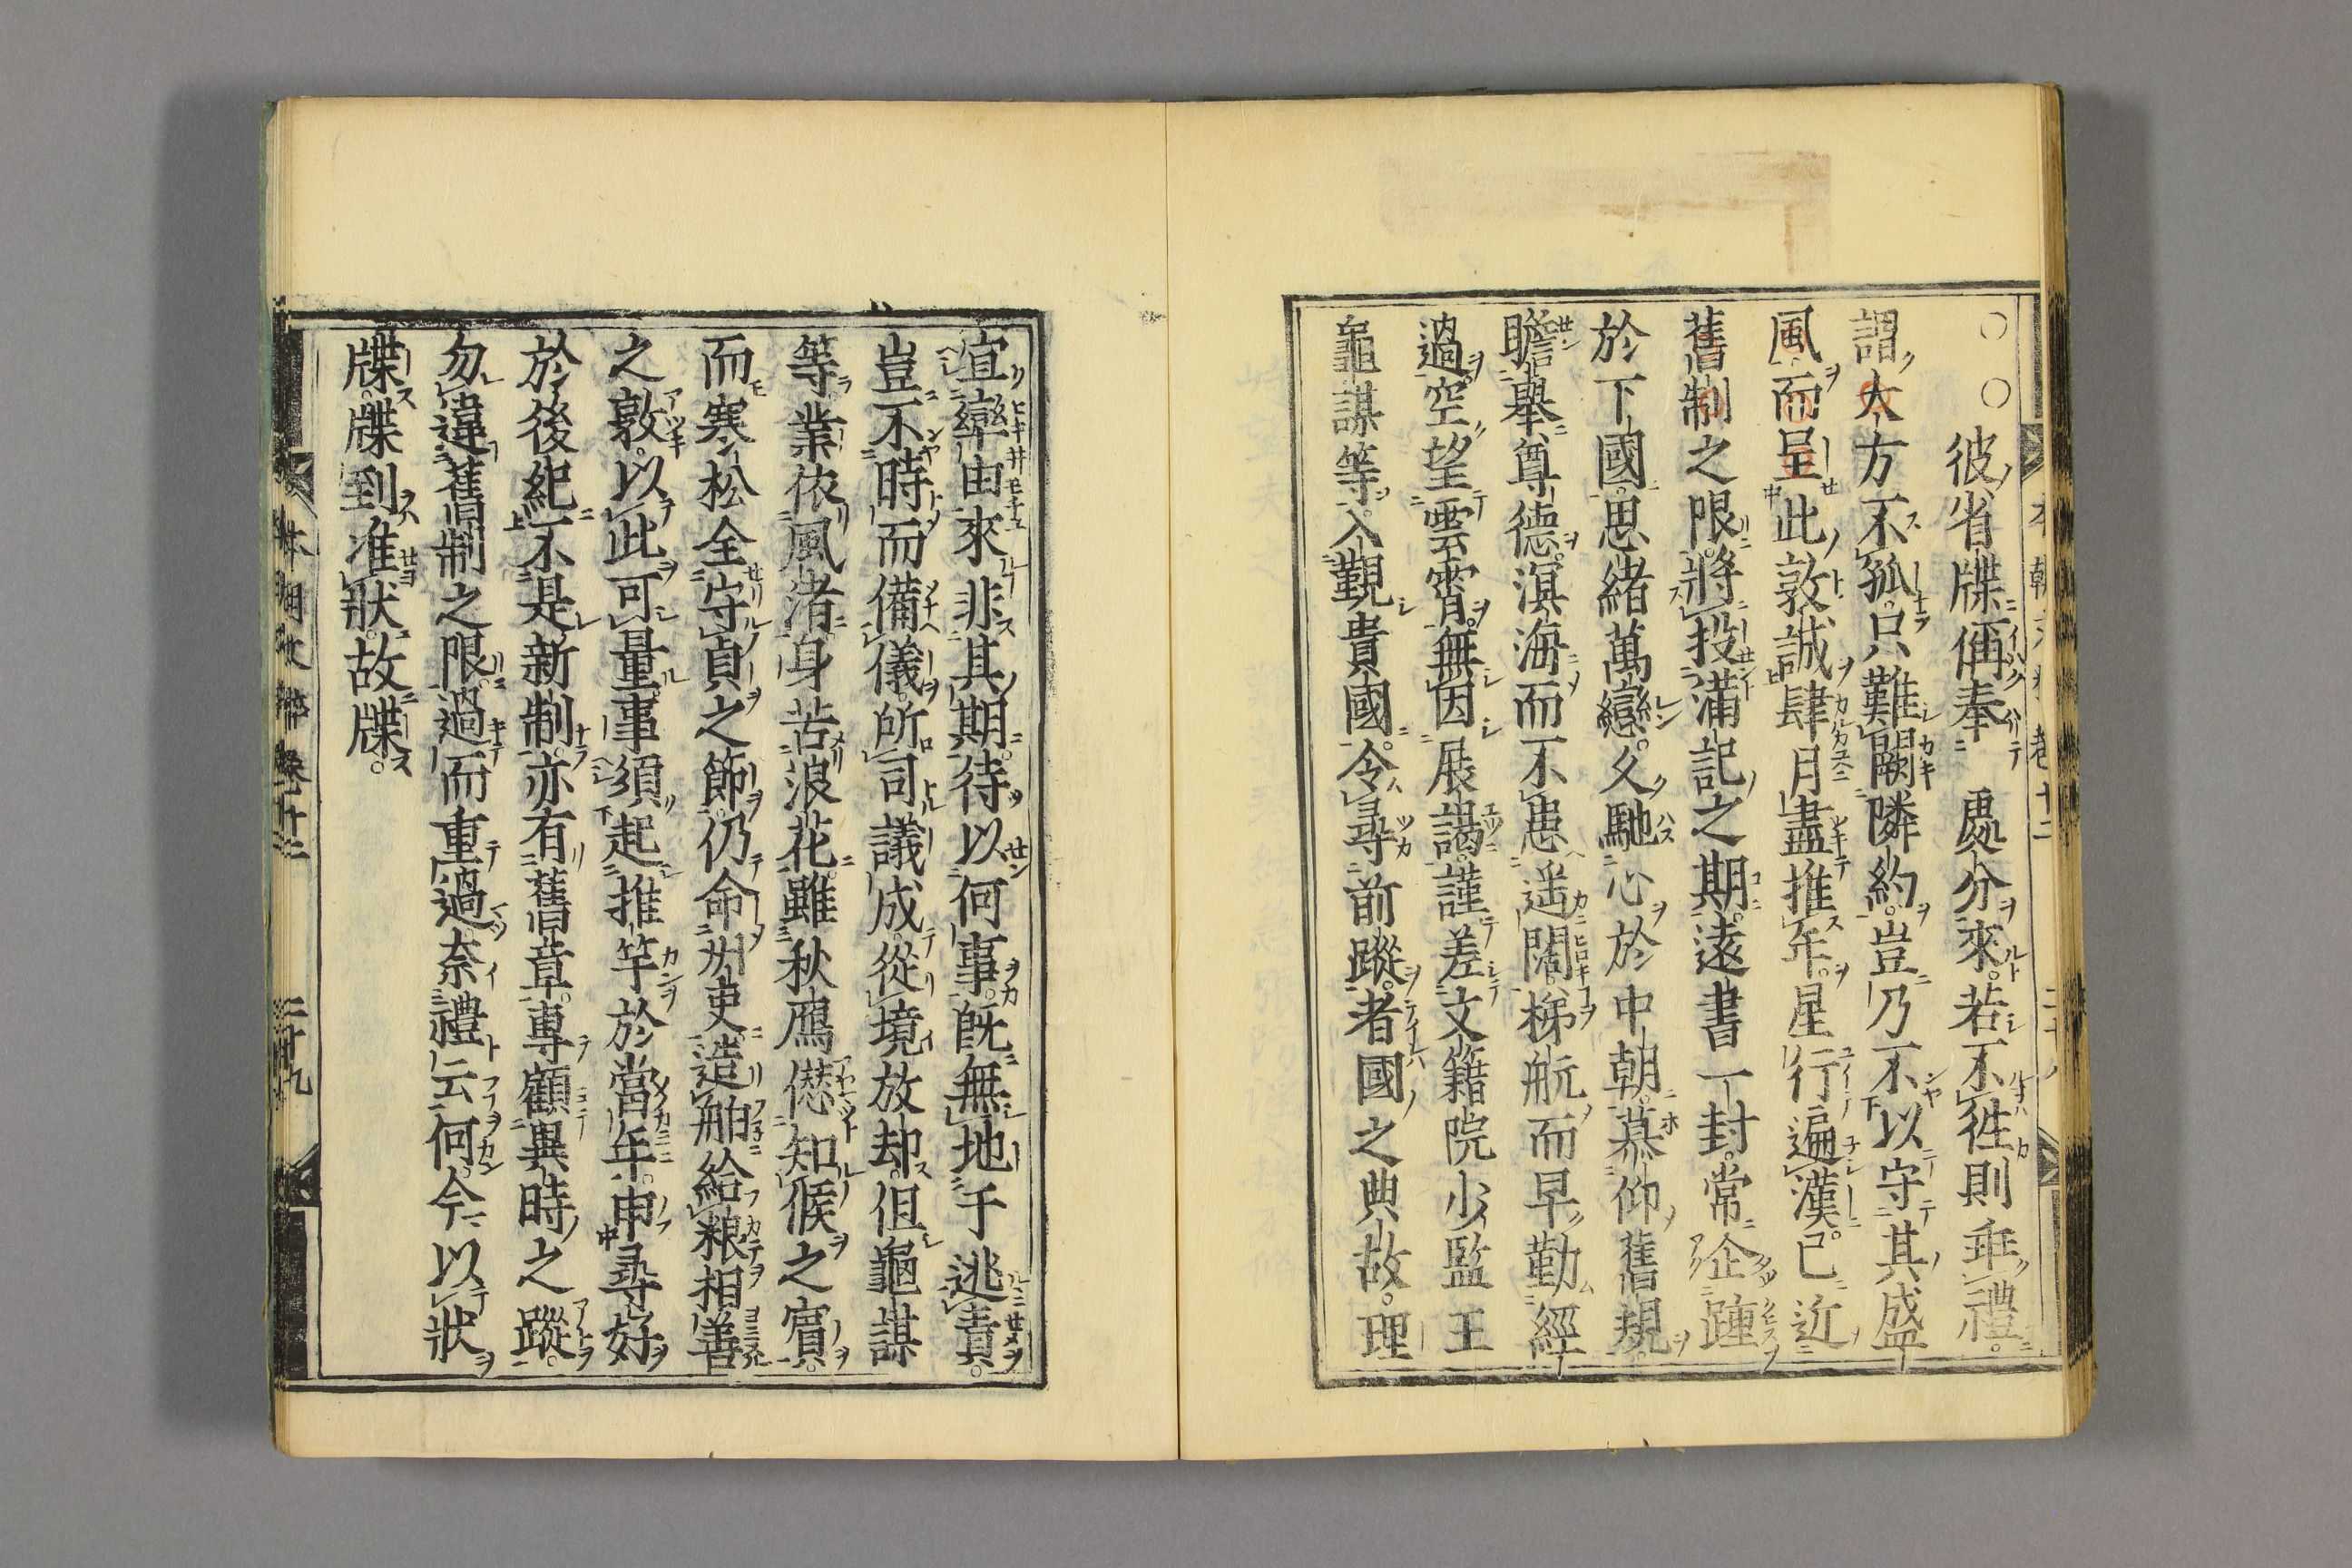 ○○彼省牒偁奉　處分來若不徃則乖禮
謂大方不孤只難闕隣約豈乃不以守其盛
風而呈此敦誠肆月盡推年星行遍漢已近
舊制之限將投滿記之期遠書一封常企踵
於下國思緒萬戀久馳心於中朝慕仰舊規
瞻舉尊德溟海而不患遥闊梯航而早勤經
過空望雲霄無因展謁謹差文籍院少監王
龜謀等入覲貴國令尋前蹤者國之典故理
宜率由來非其期待以何事既無地于逃責
豈不時而備儀所司議成從境放却但龜謀
等業依風渚身苦浪花雖秋鴈僁知候之賓
而寒松全守貞之節仍命州吏造舶給粮相善
之敦以此可量事須起推竿於當年申尋好
於後紀不是新制亦有舊章專顧異時之蹤
勿違舊制之限過而重過奈禮云何今以狀
牒牒到准狀故牒
本朝文粹卷十二　二十九